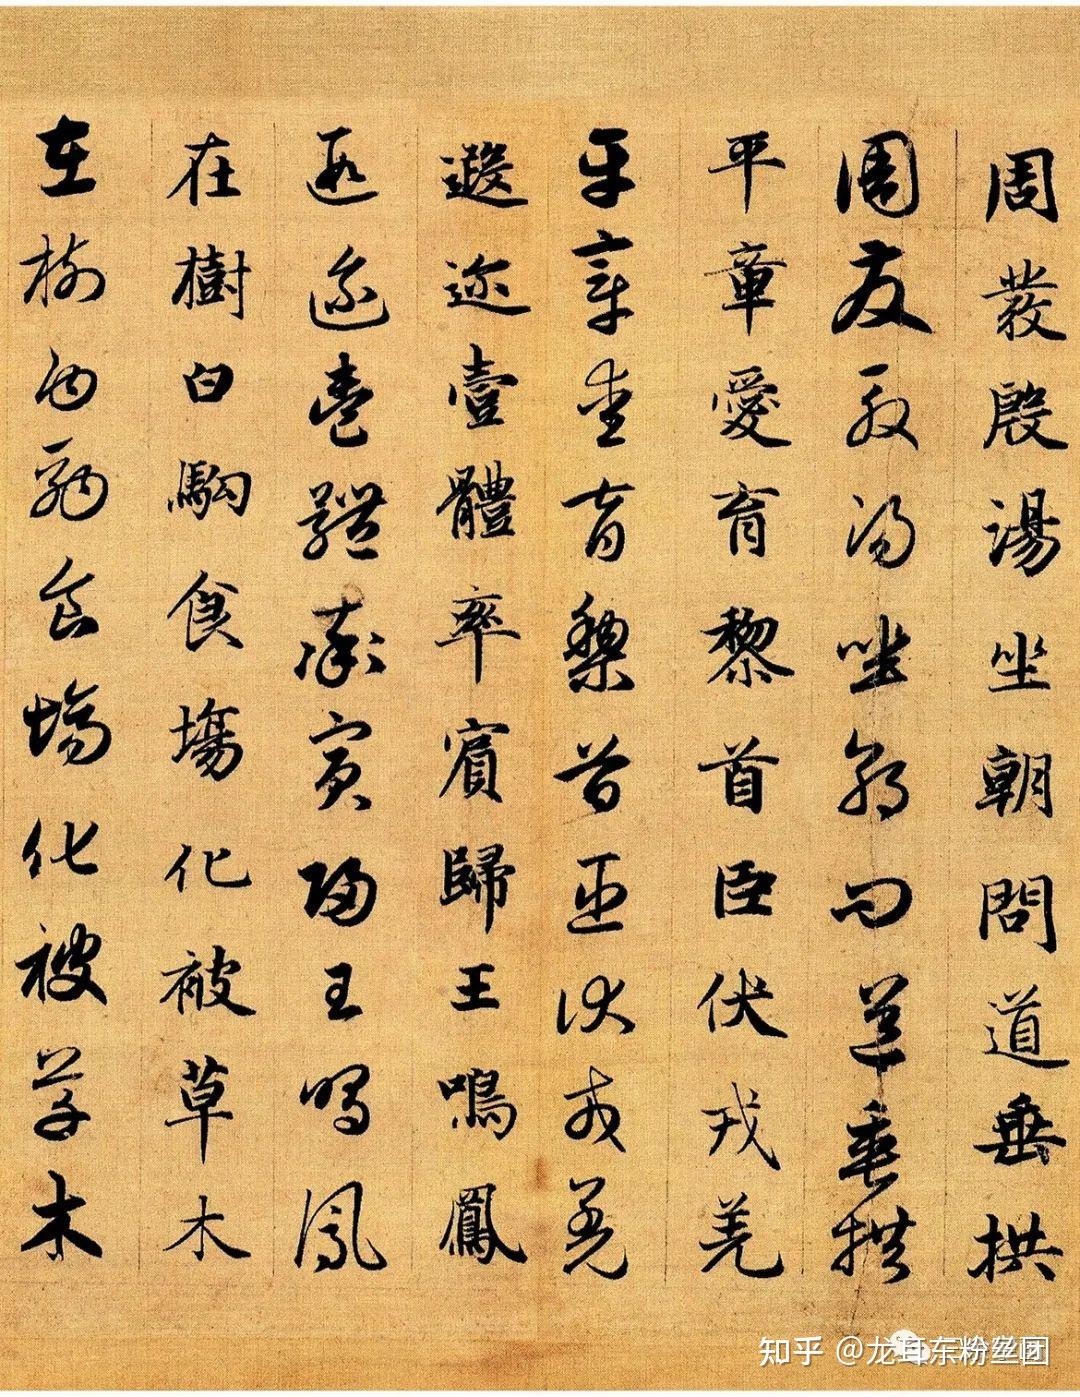 周發殷湯坐朝問道垂拱
周發殷湯坐朝問道垂拱
平章愛育黎首臣伏戎羌
平章愛育黎首臣伏戎羌
遐迩壹體率賓歸王鳴鳳
遐迩壹體率賓歸王鳴鳳
在樹白駒食塲化被草木
在樹白駒食塲化被草木
知乎 @龙耳东粉丝团